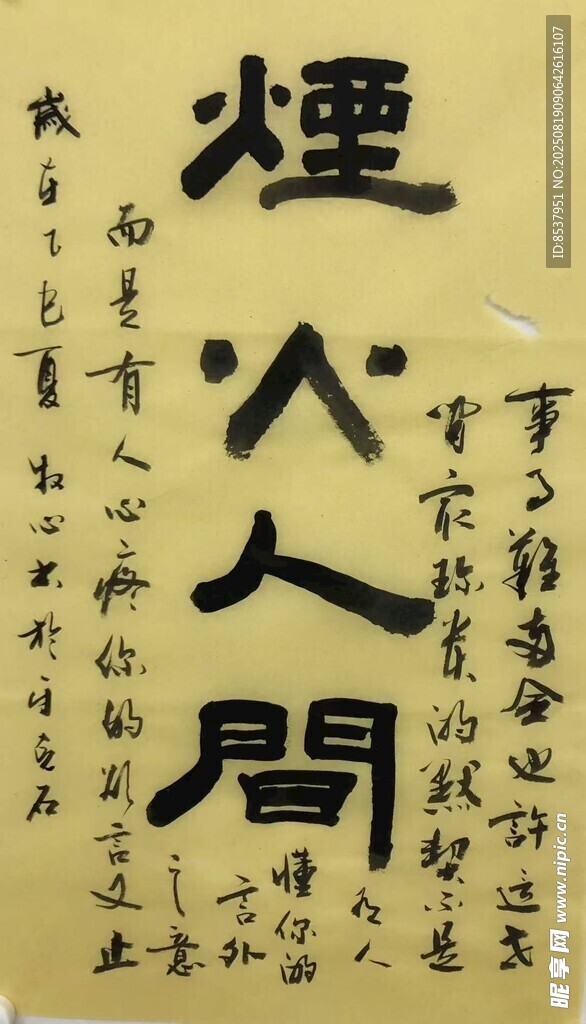 煙火人間
事事難両全也許這世
間最珍贵的默契不是
有人
懂你的
言外
之意
而是有人心疼你的欲言又止
歲在乙巳夏 牧心书於平克石
ID:8537951 NO:20250819090642616107
昵享网 www.nipic.cn